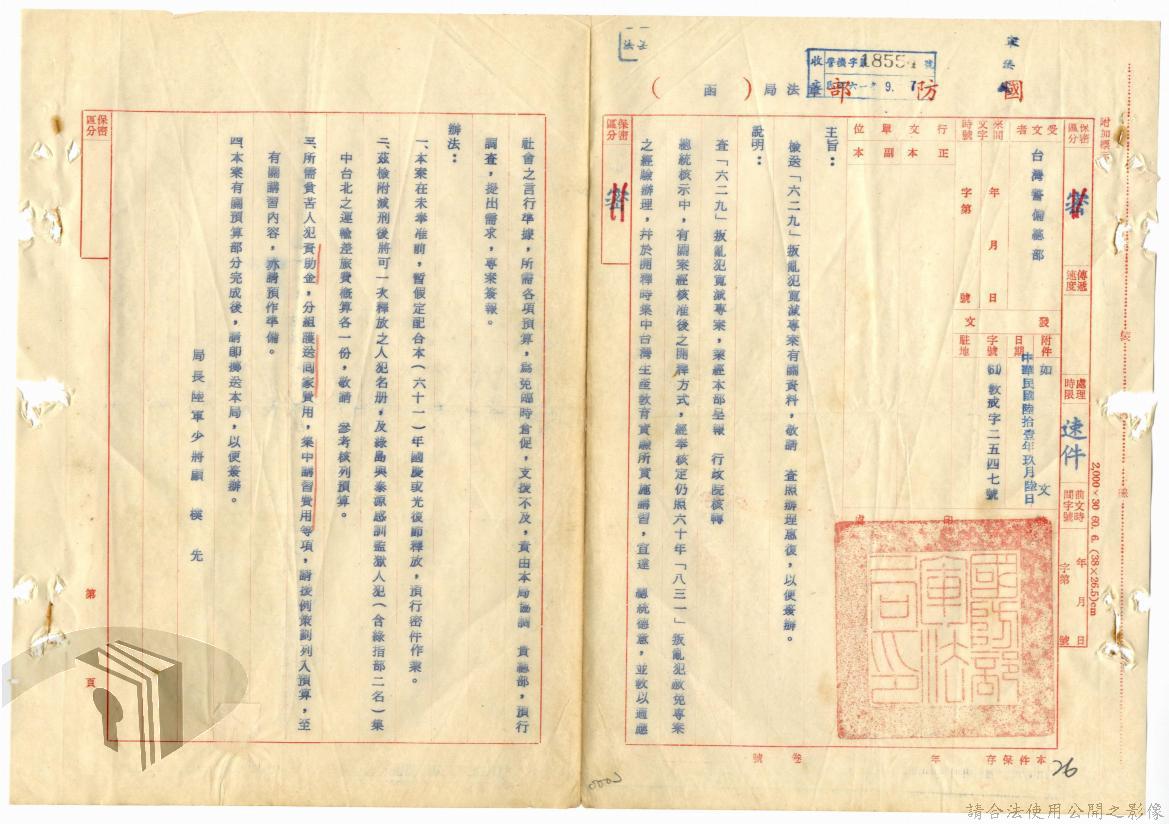 國防部軍法局（函）
收 管機字第1855號
61. 9. 7
軍法
附加標
保密區分
密
傳遞速度
處理時限
速件
前文時間字號
年 月 日
字第 號
受文者
台灣警備總部
來文時間字號
年 月 日
字第 號
行文單位
正本
副本
發文
附件
如文
日期
中華民國陸拾壹年玖月陸日
字號
(61)教戒字二五四七號
駐地
國防部軍法局印
2,000×30 60.6.(38×26.5)cm
主旨：
檢送「六二九」叛亂犯寬減專案有關資料，敬請 查照辦理惠復，以便簽辦。
說明：
查「六二九」叛亂犯寬減專案，業經本部呈報 行政院核轉
總統核示中，有關案經核准後之開釋方式，經奉核定仍照六十年「八三一」叛亂犯赦免專案
之經驗辦理，幷於開釋時集中台灣生產教育實驗所實施講習，宣達 總統德意，並教以適應
本件保存 年
卷 號
26
保密區分
密
社會之言行準據，所需各項預算，爲免臨時倉促，支援不及，責由本局協調 貴總部，預行
調查，提出需求，專案簽報。
辦法：
一、本案在未奉准前，暫假定配合本（六十一）年國慶或光復節釋放，預行密件作業。
二、茲檢附減刑後將可一次釋放之人犯名册，及綠島與泰源感訓監獄人犯（含綠指部二名）集
中台北之運輸差旅費概算各一份，敬請 參考核列預算。
三、所需貧苦人犯資助金，分組護送回家費用，集中講習費用等項，請援例策劃列入預算，至
有關講習內容，亦請預作準備。
四、本案有關預算部分完成後，請即擲送本局，以便簽辦。
局長陸軍少將顧樸先
保密區分
第 頁
請合法使用公開之影像